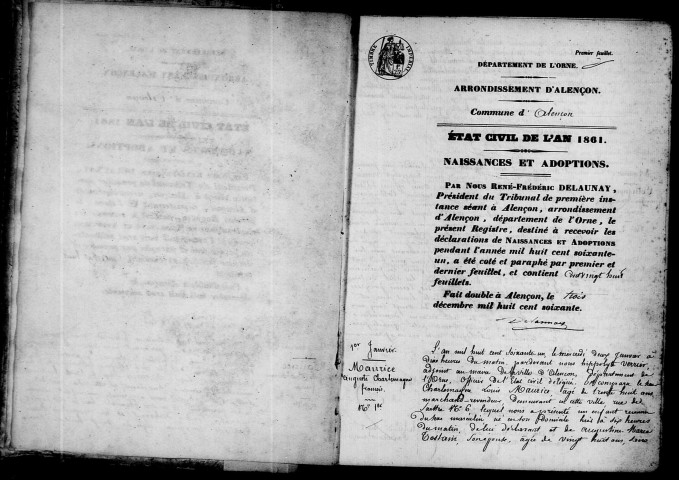 Premier feuillet.
TIMBRE IMPÉRIAL
DÉPARTEMENT DE L'ORNE.
ARRONDISSEMENT D'ALENÇON.
Commune d'Alençon
ÉTAT CIVIL DE L'AN 1861.
NAISSANCES ET ADOPTIONS.
PAR NOUS RENÉ-FRÉDÉRIC DELAUNAY,
Président du Tribunal de première ins-
tance séant à Alençon, arrondissement
d'Alençon, département de l'Orne, le
présent Registre, destiné à recevoir les
déclarations de NAISSANCES ET ADOPTIONS
pendant l'année mil huit cent soixante-
un, a été coté et paraphé par premier et
dernier feuillet, et contient
feuillets.
Fait double à Alençon, le trois
décembre mil huit cent soixante.
Delaunay
1er Janvier.
Maurice
Auguste Charlemagne
francis.
No 1er
L'an mil huit cent soixante un le mercredi deux janvier à
dix heures du matin, pardevant nous hippolyte Verrier,
adjoint au maire de la ville d'Alençon, département de
l'Orne, officier de l'état civil délégué, est comparu le sieur
Charlemagne Louis Maurice, âgé de trente huit ans,
marchand revendeur, demeurant en cette ville rue de
Sarthe No 6, lequel nous a présenté un enfant reconnu
du sexe masculin né en son domicile hier à six heures
du matin, de lui déclarant et de Augustine Marie
âgée de vingt huit ans, sans